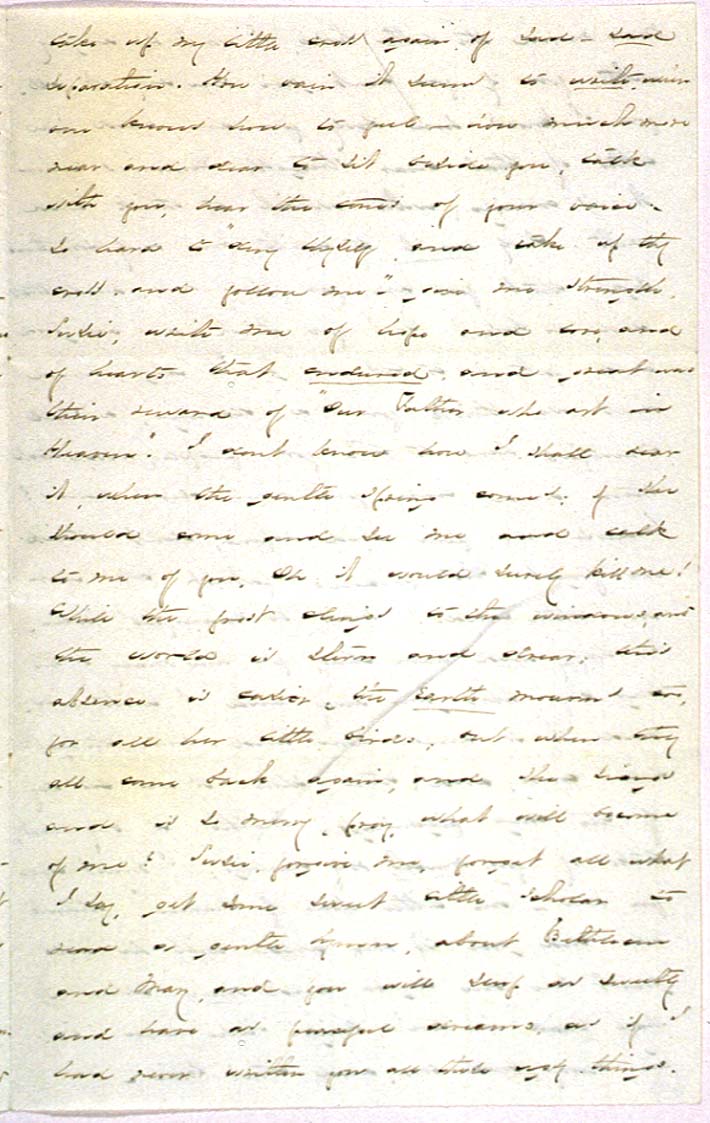 take up my little cross again of sad - sad
separation. How vain it seems to write, when
one knows how to feel - how much more
near and dear to sit beside you, talk
with you, hear the tones of your voice -
so hard to "deny thyself, and take up thy
cross, and follow me" - give me strength,
Susie, write me of hope and love, and
of hearts that endured, and great was
their reward of "Our Father who art in
Heaven". I dont know how I shall bear
it, when the gentle spring comes; if she
should come and see me and talk
to me of you, Oh it would surely kill me!
While the frost clings to the windows, and
the World is stern and drear; this
absence is easier, the Earth mourns too,
for all her little birds, but when they
all come back again, and she sings
and is so merry, pray, what will become
of me? Susie, forgive me, forget all what
I say, get some sweet little scholar to
read a gentle hymn, about Bethleem
and Mary, and you will sleep on sweetly
and have as peaceful dreams, as if I
had never written you all these ugly things.